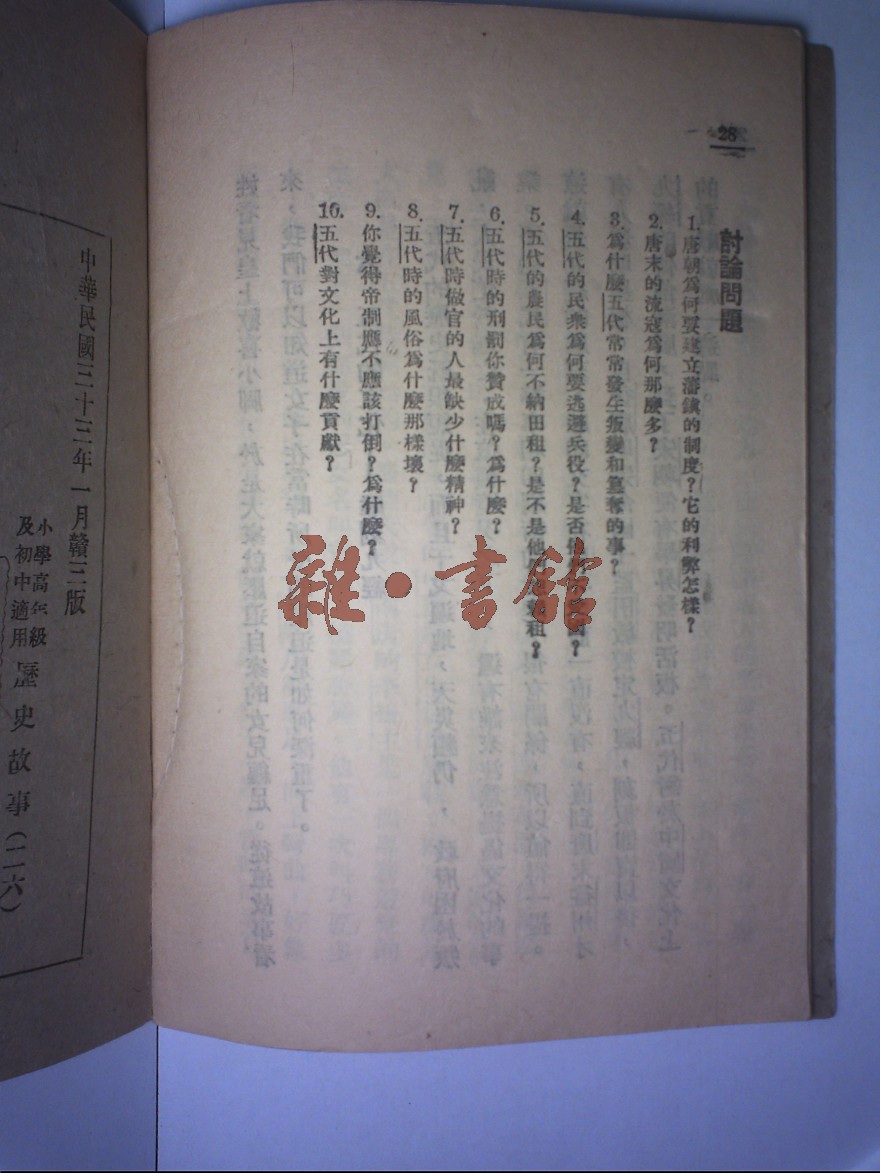 28
討論問題
1.唐朝爲何要建立藩鎮的制度？它的利弊怎樣？
2.唐末的流寇爲何那麼多？
3.爲什麼五代常常發生叛變和篡奪的事？
4.五代的民衆爲何要逃避兵役？是否
5.五代的農民爲何不納田租？是不是他 租？
6.五代時的刑罰你贊成嗎？爲什麼？
7.五代時做官的人最缺少什麼精神？
8.五代時的風俗爲什麼那樣壞？
9.你覺得帝制應不應該打倒？爲什麼？
10.五代對文化上有什麼貢獻？
雜·書館
中華民國三十三年一月贛三版
小學高年級
及初中適用
歷史故事（二六）